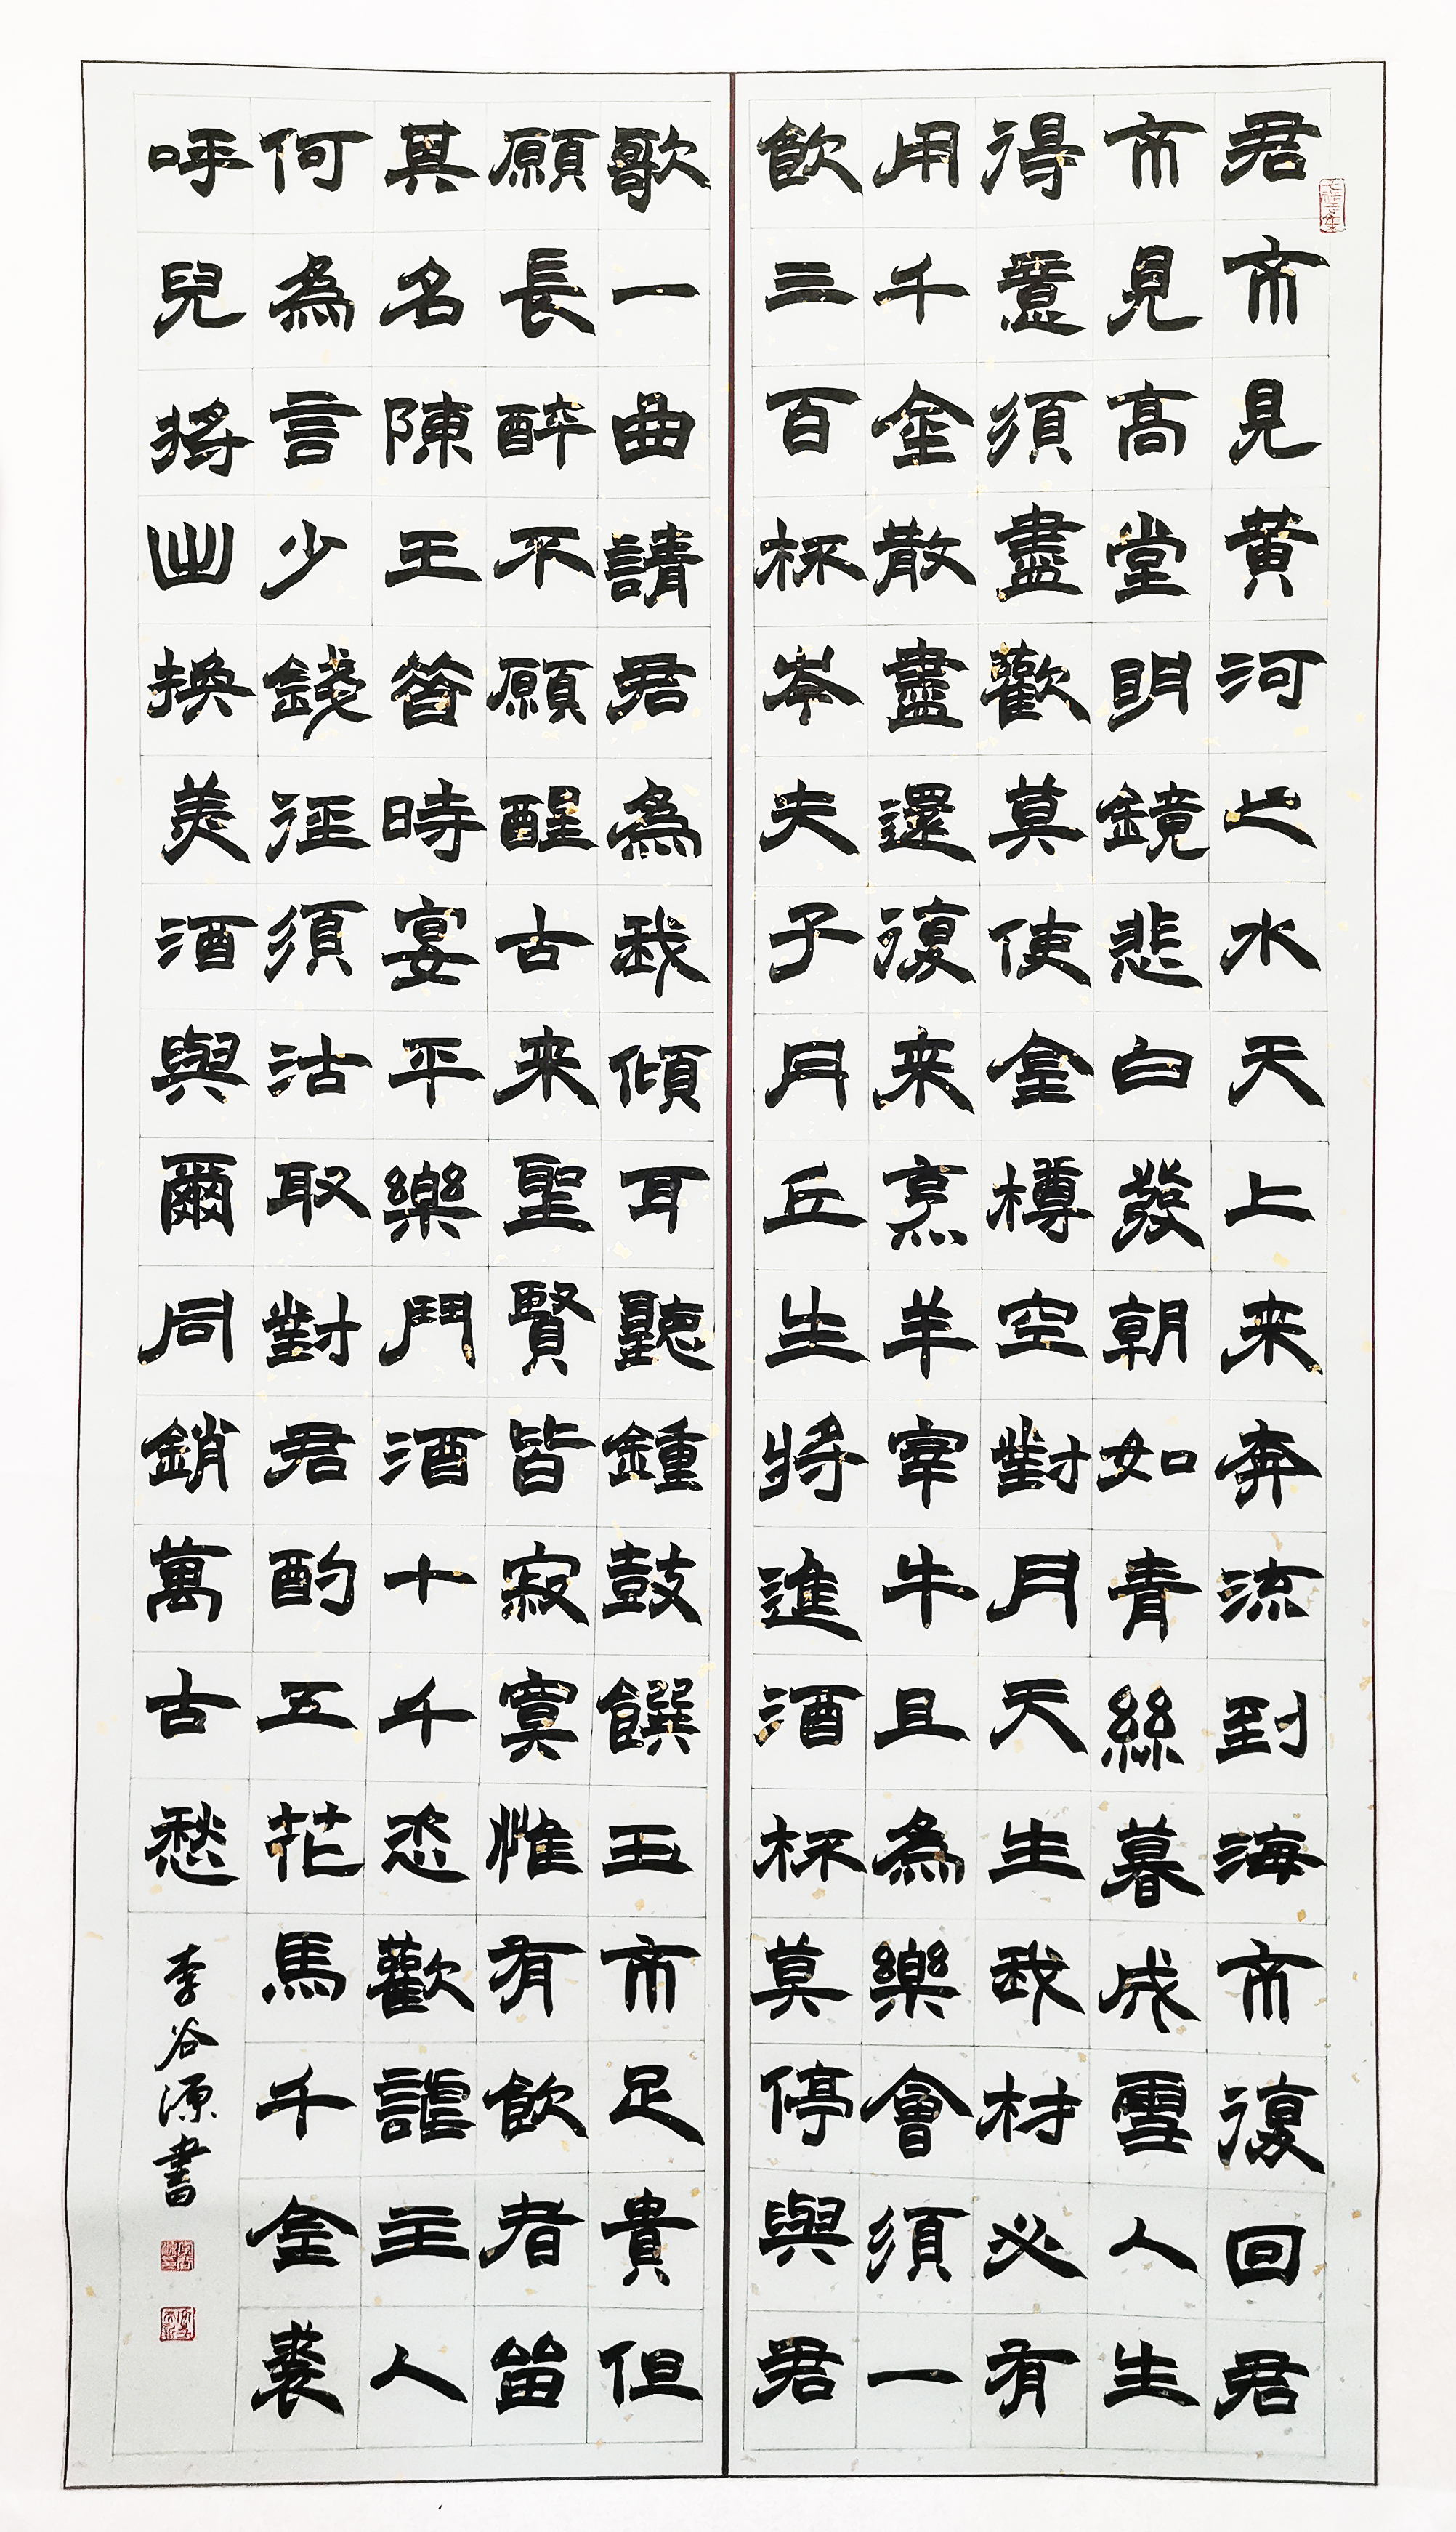 君不見黄河之水天上来奔流到海不復回君
不見高堂明鏡悲白發朝如青絲暮成雪人生
得意須盡歡莫使金樽空對月天生我材必有
用千金散盡還復来烹羊宰牛且為樂會須一
飲三百杯岑夫子丹丘生將進酒杯莫停與君
歌一曲請君為我傾耳聽鍾鼓饌玉不足貴但
願長醉不願醒古来聖賢皆寂寞惟有飲者留
其名陳王昔時宴平樂鬥酒十千恣歡謔主人
何為言少錢徑須沽取對君酌五花馬千金裘
呼兒將出換美酒與爾同銷萬古愁
李谷源書